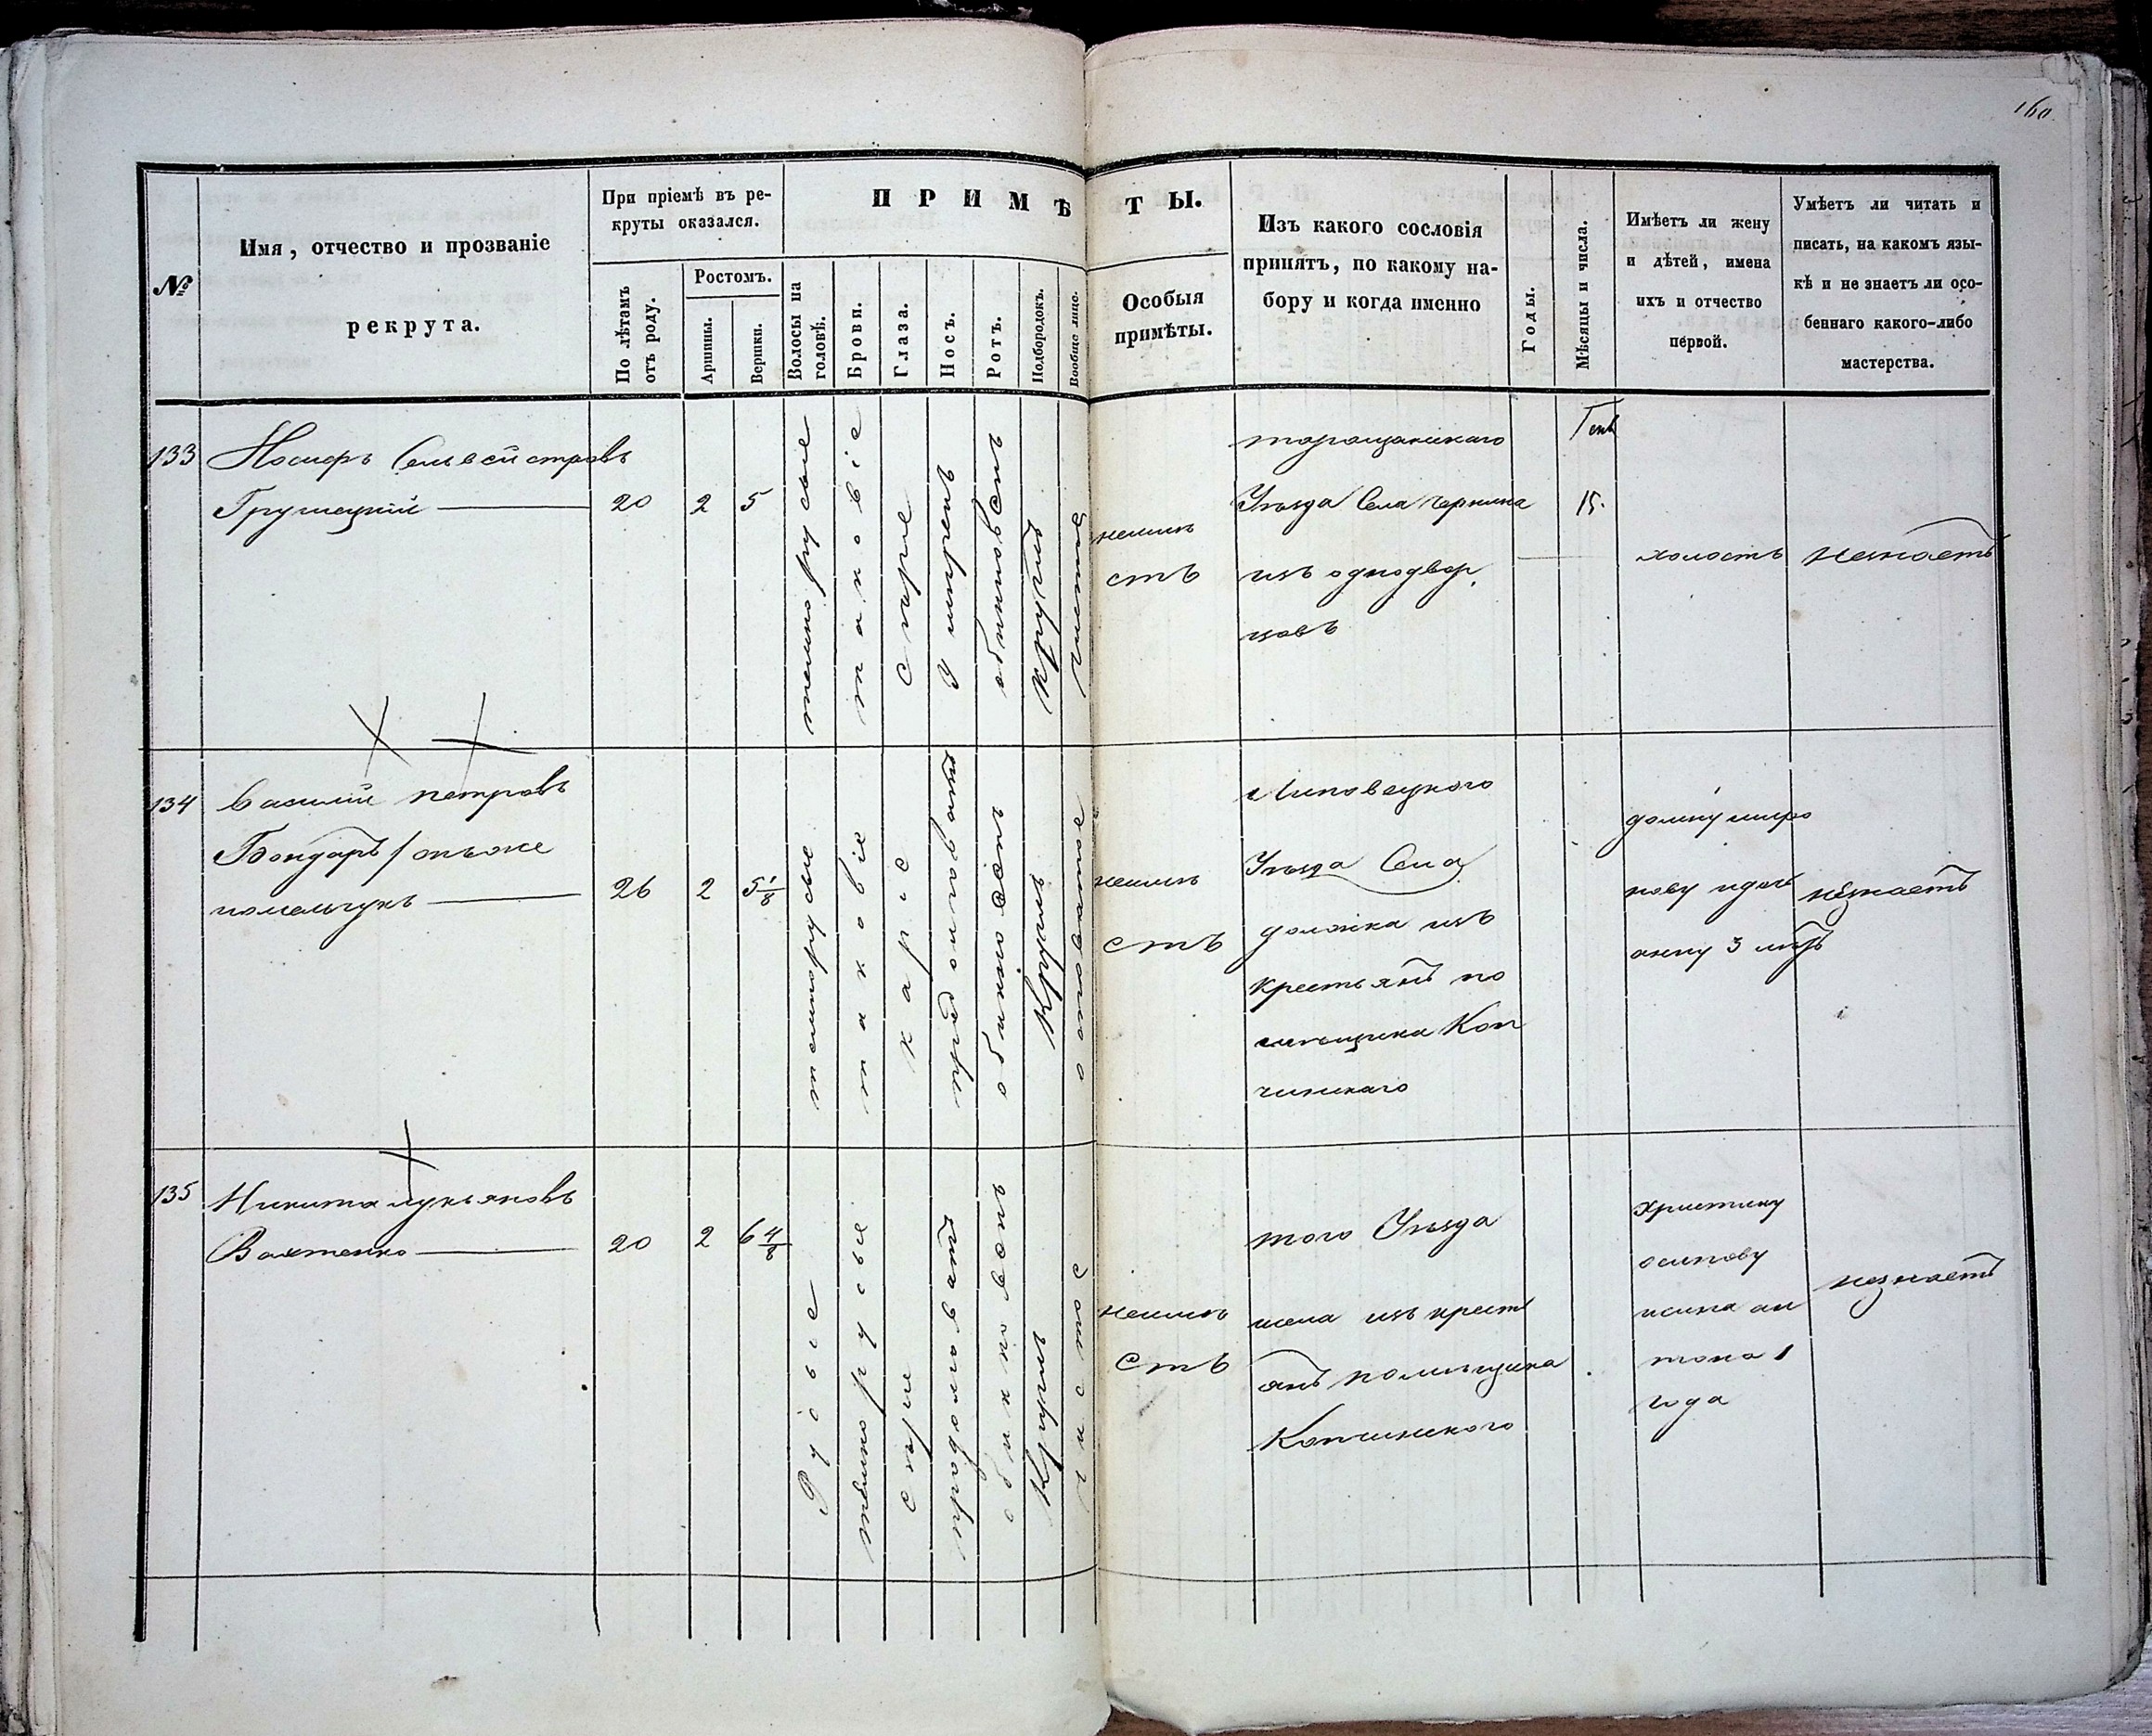 160
№
Имя, отчество и прозваніе
рекрута.
При пріемѣ въ ре-
круты оказался.
По лѣтамъ
отъ роду.
Ростомъ.
Аршины.
Вершки.
ПРИМѢТЫ.
Волосы на
головѣ.
Брови.
Глаза.
Носъ.
Ротъ.
Подбородокъ.
Вообще лице.
Особыя
примѣты.
Изъ какого сословія
принятъ, по какому на-
бору и когда именно
Годы.
Мѣсяцы и числа.
Имѣетъ ли жену
и дѣтей, имена
ихъ и отчество
первой.
Умѣетъ ли читать и
писать, на какомъ язы-
кѣ и не знаетъ ли осо-
беннаго какого-либо
мастерства.
133
Сельвейстровъ
Грушецкій
20
2
5
темнорусые
таковіе
Сѣрые
Умѣренъ
обикновенъ
Круглъ
чистое
неимѣ
етъ
таращанскаго
Уѣзда Села
изъ однодвор
цовъ
Генв
15.
холостъ
незнаетъ
134
Василій петровъ
Бондарь / онъже
20
26
2
5 1/8
темнорусые
таковіе
каріе
продолговатъ
обикновенъ
Круглъ
неимѣ
етъ
Липовецкого
Уѣзда Села
должка изъ
крестьянъ по
мѣщика Коп
чинскаго
анну 3 лѣтъ
незнаетъ
135
Никита лукьяновъ
Вахтенко
20
2
6 4/8
Русіе
темнорусые
Сѣрые
продолговатъ
обикновенъ
Круглъ
чистое
неимѣ
етъ
того Уѣзда
исела изъ крест
янъ помѣщика
Копчинского
христину
осипову
исина ан
тона 1
года
незнаетъ